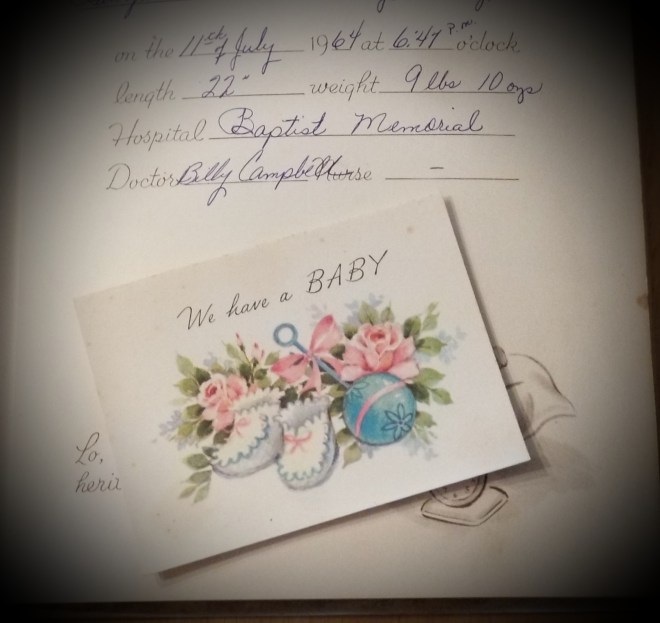 on the 11th of July 1964 at 6:47 P.M. o'clock
length 22" weight 9 lbs 10 ozs
Hospital Baptist Memorial
Doctor Billy Campbell Nurse –
We have a BABY
Lo,